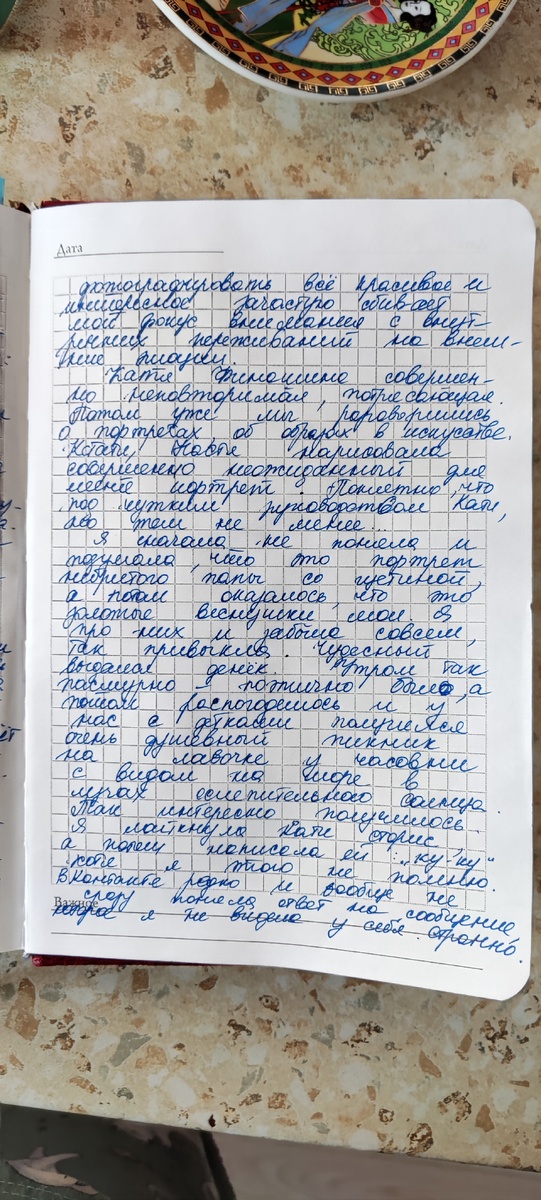 Дата
фотографировать всё красивое и
интересное зачастую сбивает
мой фокус внимания с внут-
ренних переживаний на внеш-
ние
Катя Тимошина совершен-
но неповторимая, потрясающая.
Потом уже мы разговорились
о портретах об образах в искусстве.
Кстати Настя нарисовала
совершенно неожиданный для
меня портрет. Понятно, что
под чутким руководством Кати,
но тем не менее...
Я сначала не поняла и
подумала, что это портрет
небритого папы со щетиной,
а потом оказалось, что это
золотые веснушки мои. Я
про них и забыла совсем,
так привыкла. Чудесный
выдался денёк. Утром так
пасмурно - поэтично было, а
потом распогодилось и у
нас с детками получился
очень душевный пикник
на лавочке у часовни
с видом на море в
лучах ослепительного солнца.
Так интересно получилось.
Я лайкнула Кати сторис
а потом написала ей: „ку-ку"
хотя я этого не помню.
ВКонтакте редко и вообще не
Важное
сразу поняла ответ на сообщение
которое я не видела у себя. Странно.